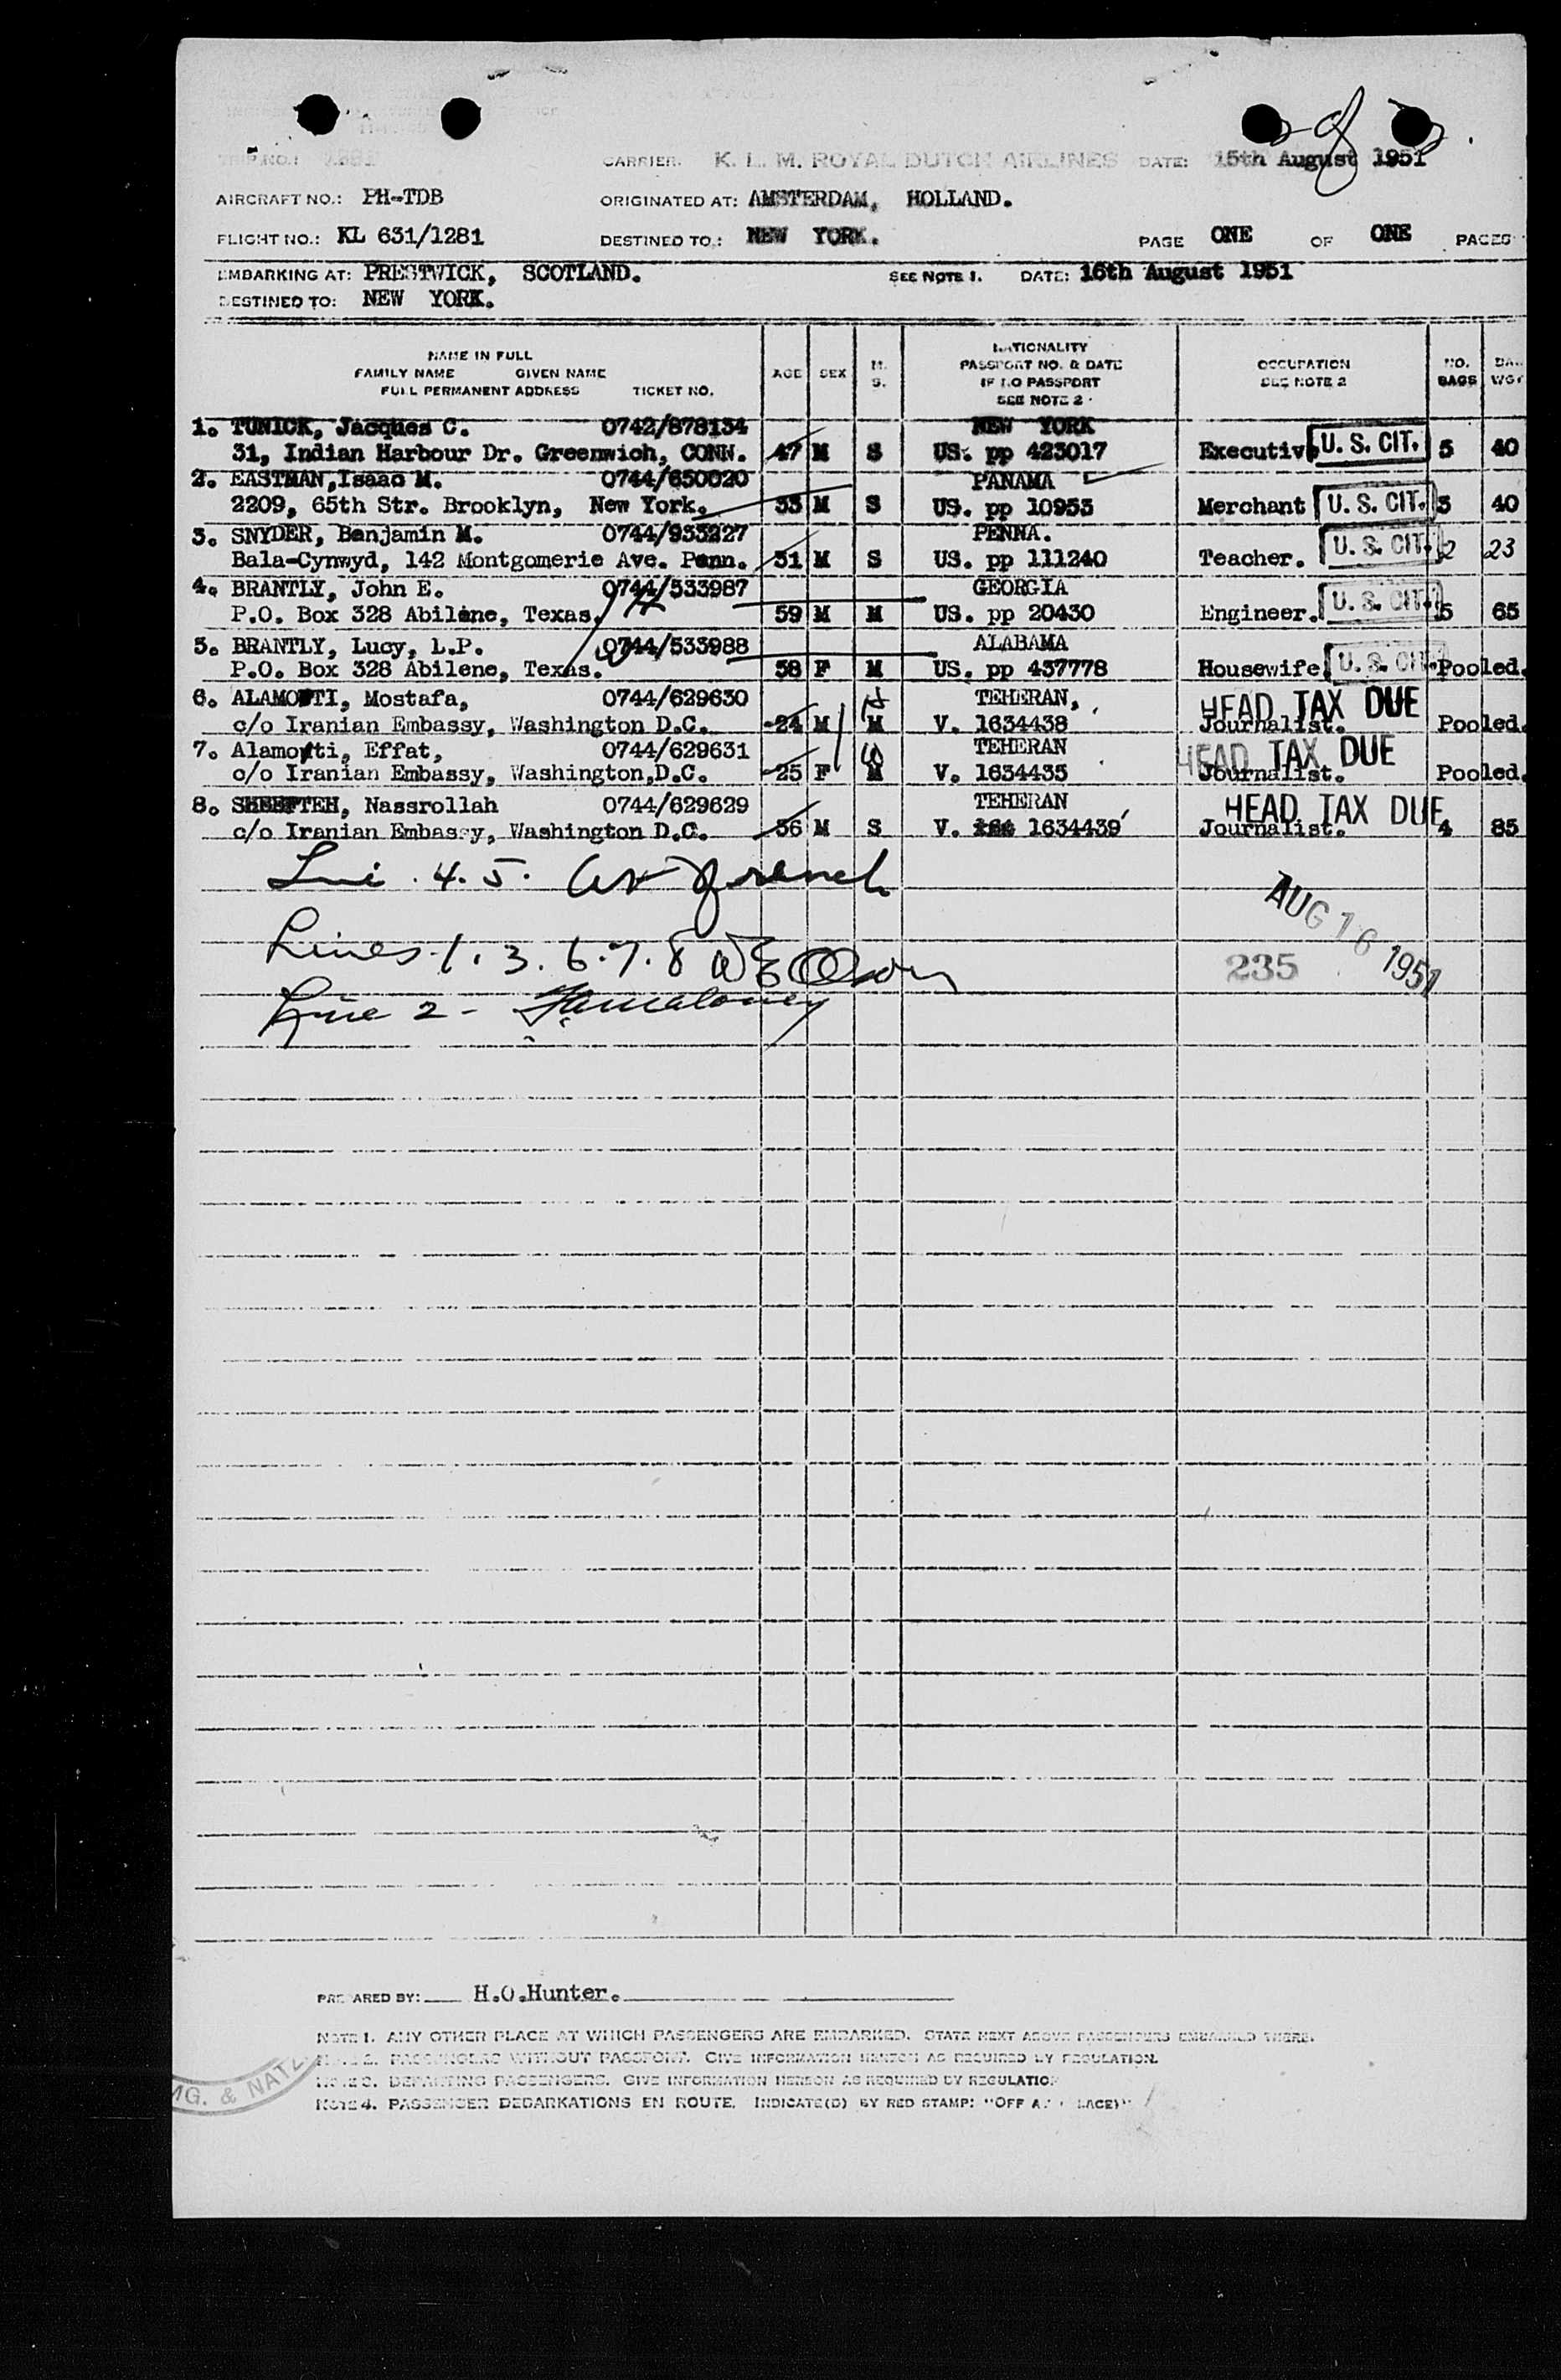 2 of 3
TRIP NO.: CARRIER: K. L. M. ROYAL DUTCH AIRLINES DATE: 15th August 1951
AIRCRAFT NO.: PH-TDB ORIGINATED AT: AMSTERDAM, HOLLAND.
FLIGHT NO.: KL 631/1281 DESTINED TO.: NEW YORK. PAGE ONE OF ONE PAGES
EMBARKING AT: PRESTWICK, SCOTLAND. SEE NOTE 1. DATE: 16th August 1951
DESTINED TO: NEW YORK.
NAME IN FULL
FAMILY NAME GIVEN NAME
FULL PERMANENT ADDRESS TICKET NO.
AGE SEX M. S.
NATIONALITY
PASSPORT NO. & DATE
IF NO PASSPORT
SEE NOTE 2
OCCUPATION
SEE NOTE 2
NO. BAGS
WGT
1. TUNICK, Jacques C. 0742/878134 NEW YORK
31, Indian Harbour Dr. Greenwich, CONN. 47 M S US. pp 423017 Executive U. S. CIT. 5 40
2. EASTMAN, Isaac M. 0744/650020 PANAMA
2209, 65th Str. Brooklyn, New York. 33 M S US. pp 10953 Merchant U. S. CIT. 3 40
3. SNYDER, Benjamin M. 0744/933227 PENNA.
Bala-Cynwyd, 142 Montgomerie Ave. Penn. 31 M S US. pp 111240 Teacher. U. S. CIT. 2 23
4. BRANTLY, John E. 0744/533987 GEORGIA
P.O. Box 328 Abilene, Texas. 59 M M US. pp 20430 Engineer. U. S. CIT. 5 65
5. BRANTLY, Lucy, L.P. 0744/533988 ALABAMA
P.O. Box 328 Abilene, Texas. 58 F M US. pp 437778 Housewife U. S. CIT. Pooled.
6. ALAMOUTI, Mostafa, 0744/629630 TEHERAN, HEAD TAX DUE
c/o Iranian Embassy, Washington D.C. 24 M M V. 1634438 Journalist. Pooled.
7. Alamouti, Effat, 0744/629631 TEHERAN HEAD TAX DUE
c/o Iranian Embassy, Washington, D.C. 25 F M V. 1634435 Journalist. Pooled.
8. SHEEFTEH, Nassrollah 0744/629629 TEHERAN HEAD TAX DUE
c/o Iranian Embassy, Washington D.C. 36 M S V. 1634439 Journalist. 4 85
Line . 4. 5. French
Lines 1. 3. 6. 7. 8 WE Olson
Line 2 -
AUG 16 1951
235
PREPARED BY: H.O.Hunter.
NOTE 1. ANY OTHER PLACE AT WHICH PASSENGERS ARE EMBARKED. STATE NEXT ABOVE PASSENGERS EMBARKED THERE.
NOTE 2. PASSENGERS WITHOUT PASSPORT. GIVE INFORMATION HEREON AS REQUIRED BY REGULATION.
NOTE 3. DEPARTING PASSENGERS. GIVE INFORMATION HEREON AS REQUIRED BY REGULATION
NOTE 4. PASSENGER DEBARKATIONS EN ROUTE. INDICATE(D) BY RED STAMP: "OFF AT (PLACE)"
MG. & NATZ